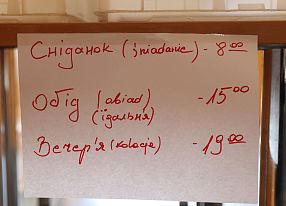 Сніданок (śniadanie) - 8 00
Обід (obiad) - 15 00
(їдальня)
Вечер'я (kolacja) - 19 00